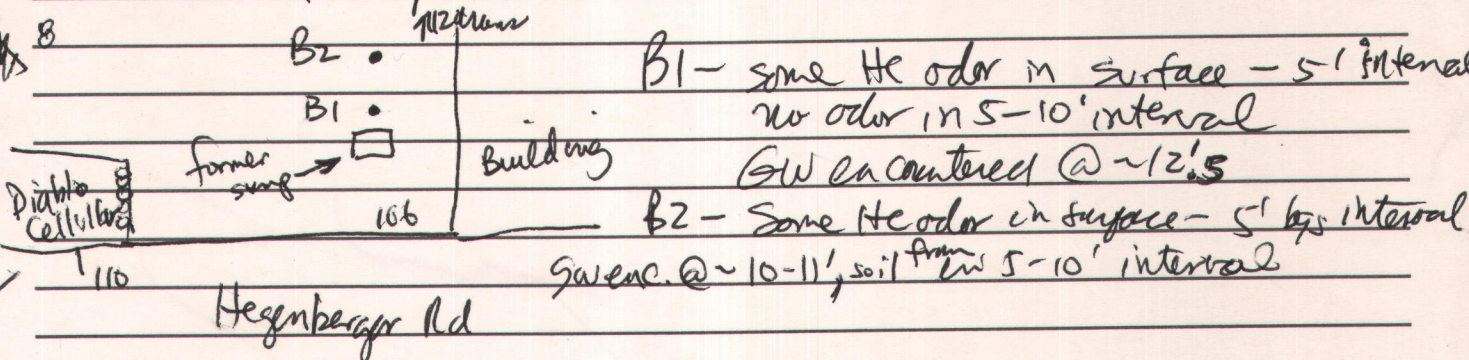 8
B2
B1
former
sump
Building
Diablo
Cellular
106
110
Hegenberger Rd
B1 - some HC odor in surface - 5' interval
no odor in 5-10' interval
GW encountered @ ~12.5'
B2 - Some HC odor in surface - 5' bgs interval
GW enc. @ ~10-11', soil from in 5-10' interval